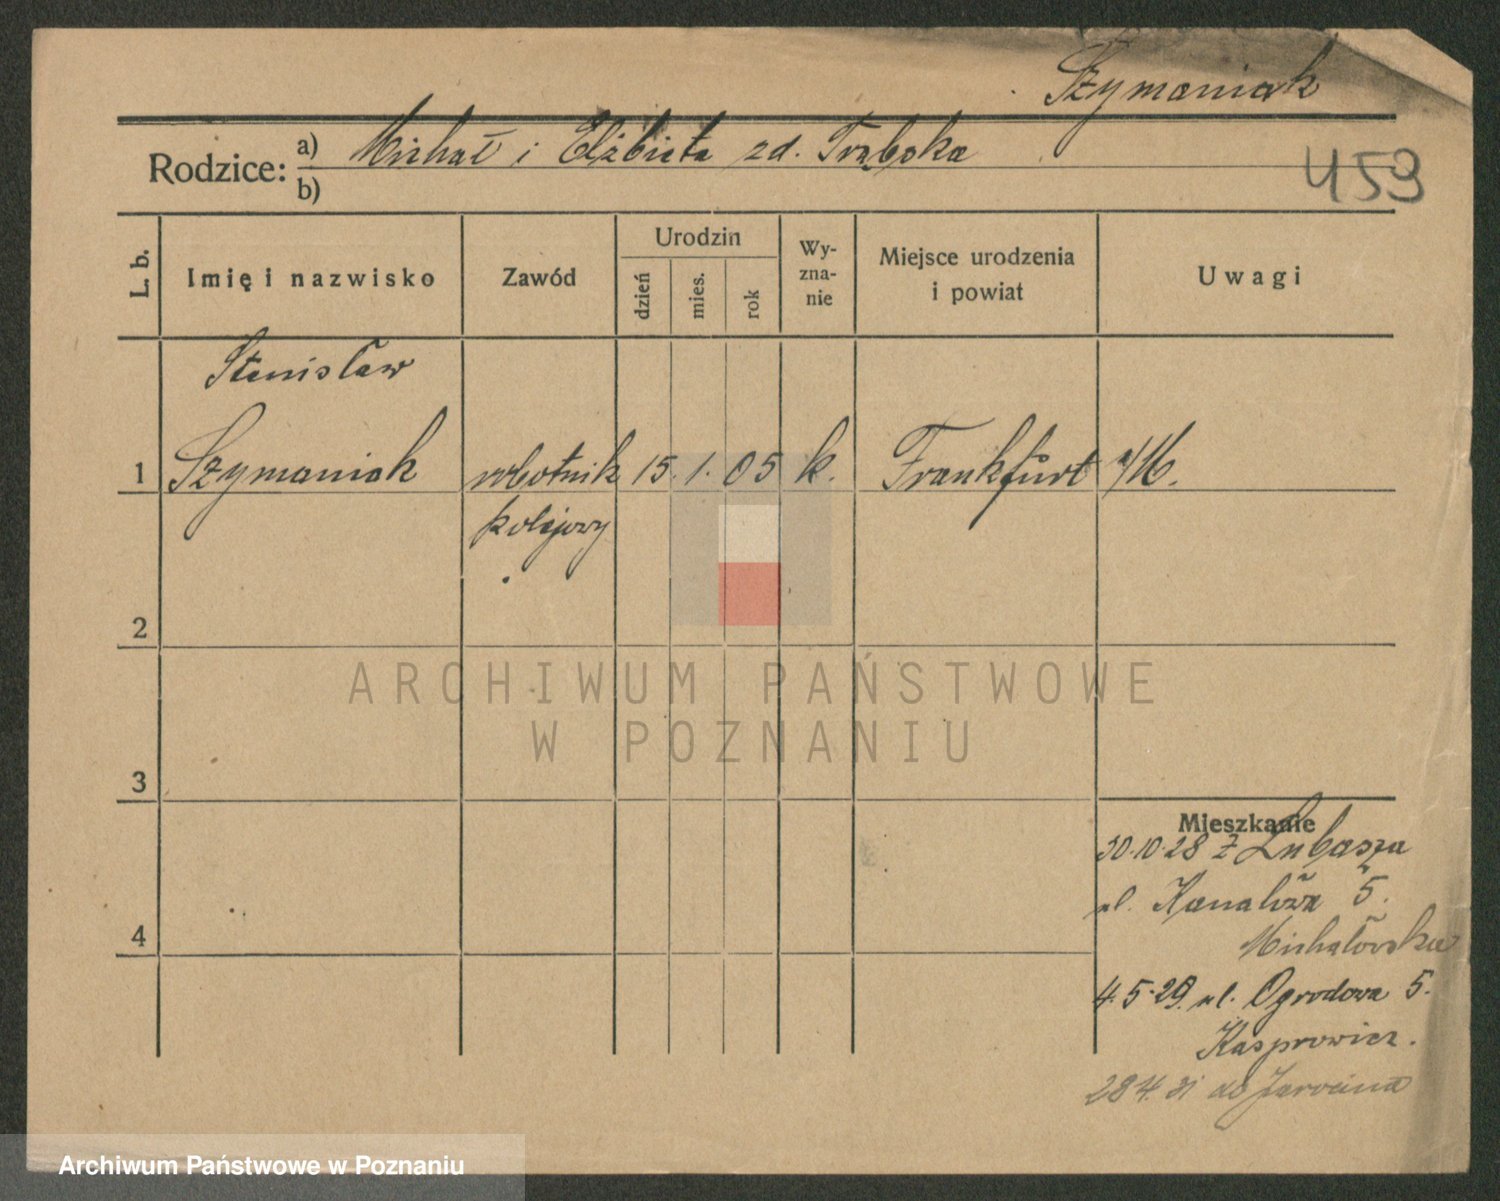 Szymaniak
Rodzice: a) Michał i Elżbieta zd. Trąbska
b)
459
L. b.
Imię i nazwisko
Zawód
Urodzin
dzień
mies.
rok
Wy-
zna-
nie
Miejsce urodzenia
i powiat
Uwagi
Stanisław
1 Szymaniak robotnik 15. 1. 05 k. Frankfurt a/M.
kolejowy
2
ARCHIWUM PAŃSTWOWE
W POZNANIU
3
Mieszkanie
30.10.28 z Lubasza
4
ul. Kanałowa 5.
Michałowska
4.5.29. ul. Ogrodowa 5.
Kasprowicz.
28.4.31 do Jarocina
Archiwum Państwowe w Poznaniu